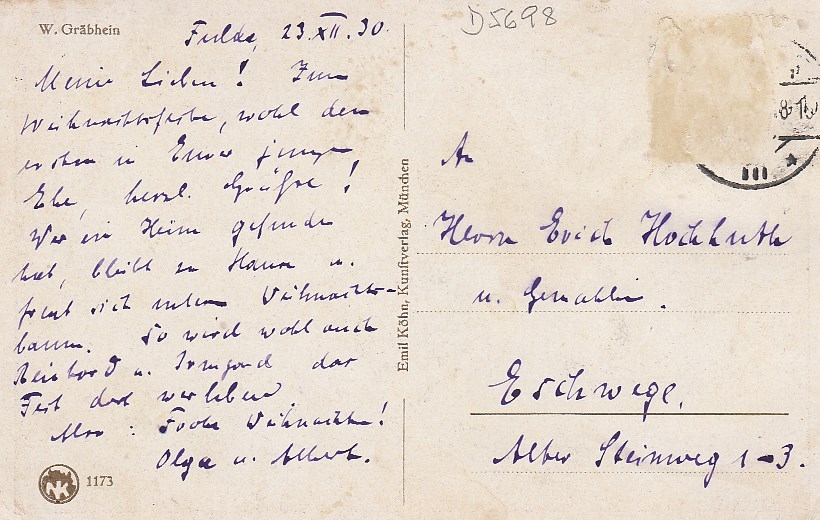 W. Gräbhein
D5698
Fulda, 23.XII.30.
Meine Lieben! Zum
Weihnachtsfeste, wohl dem
ersten in Eurer jungen
Ehe, herzl. Grüße!
Wer ein Heim gefunden
hat, bleibt zu Hause u.
freut sich unterm Weihnachts-
baum. So wird wohl auch
Reinhard u. Irmgard das
Fest dort verleben.
Also: Frohe Weihnachten!
Olga u. Albert.
NK 1173
Emil Köhn, Kunstverlag, München
8-10
An
Herrn Erich Hochhuth
u. Gemahlin.
Eschwege.
Alter Steinweg 1-3.